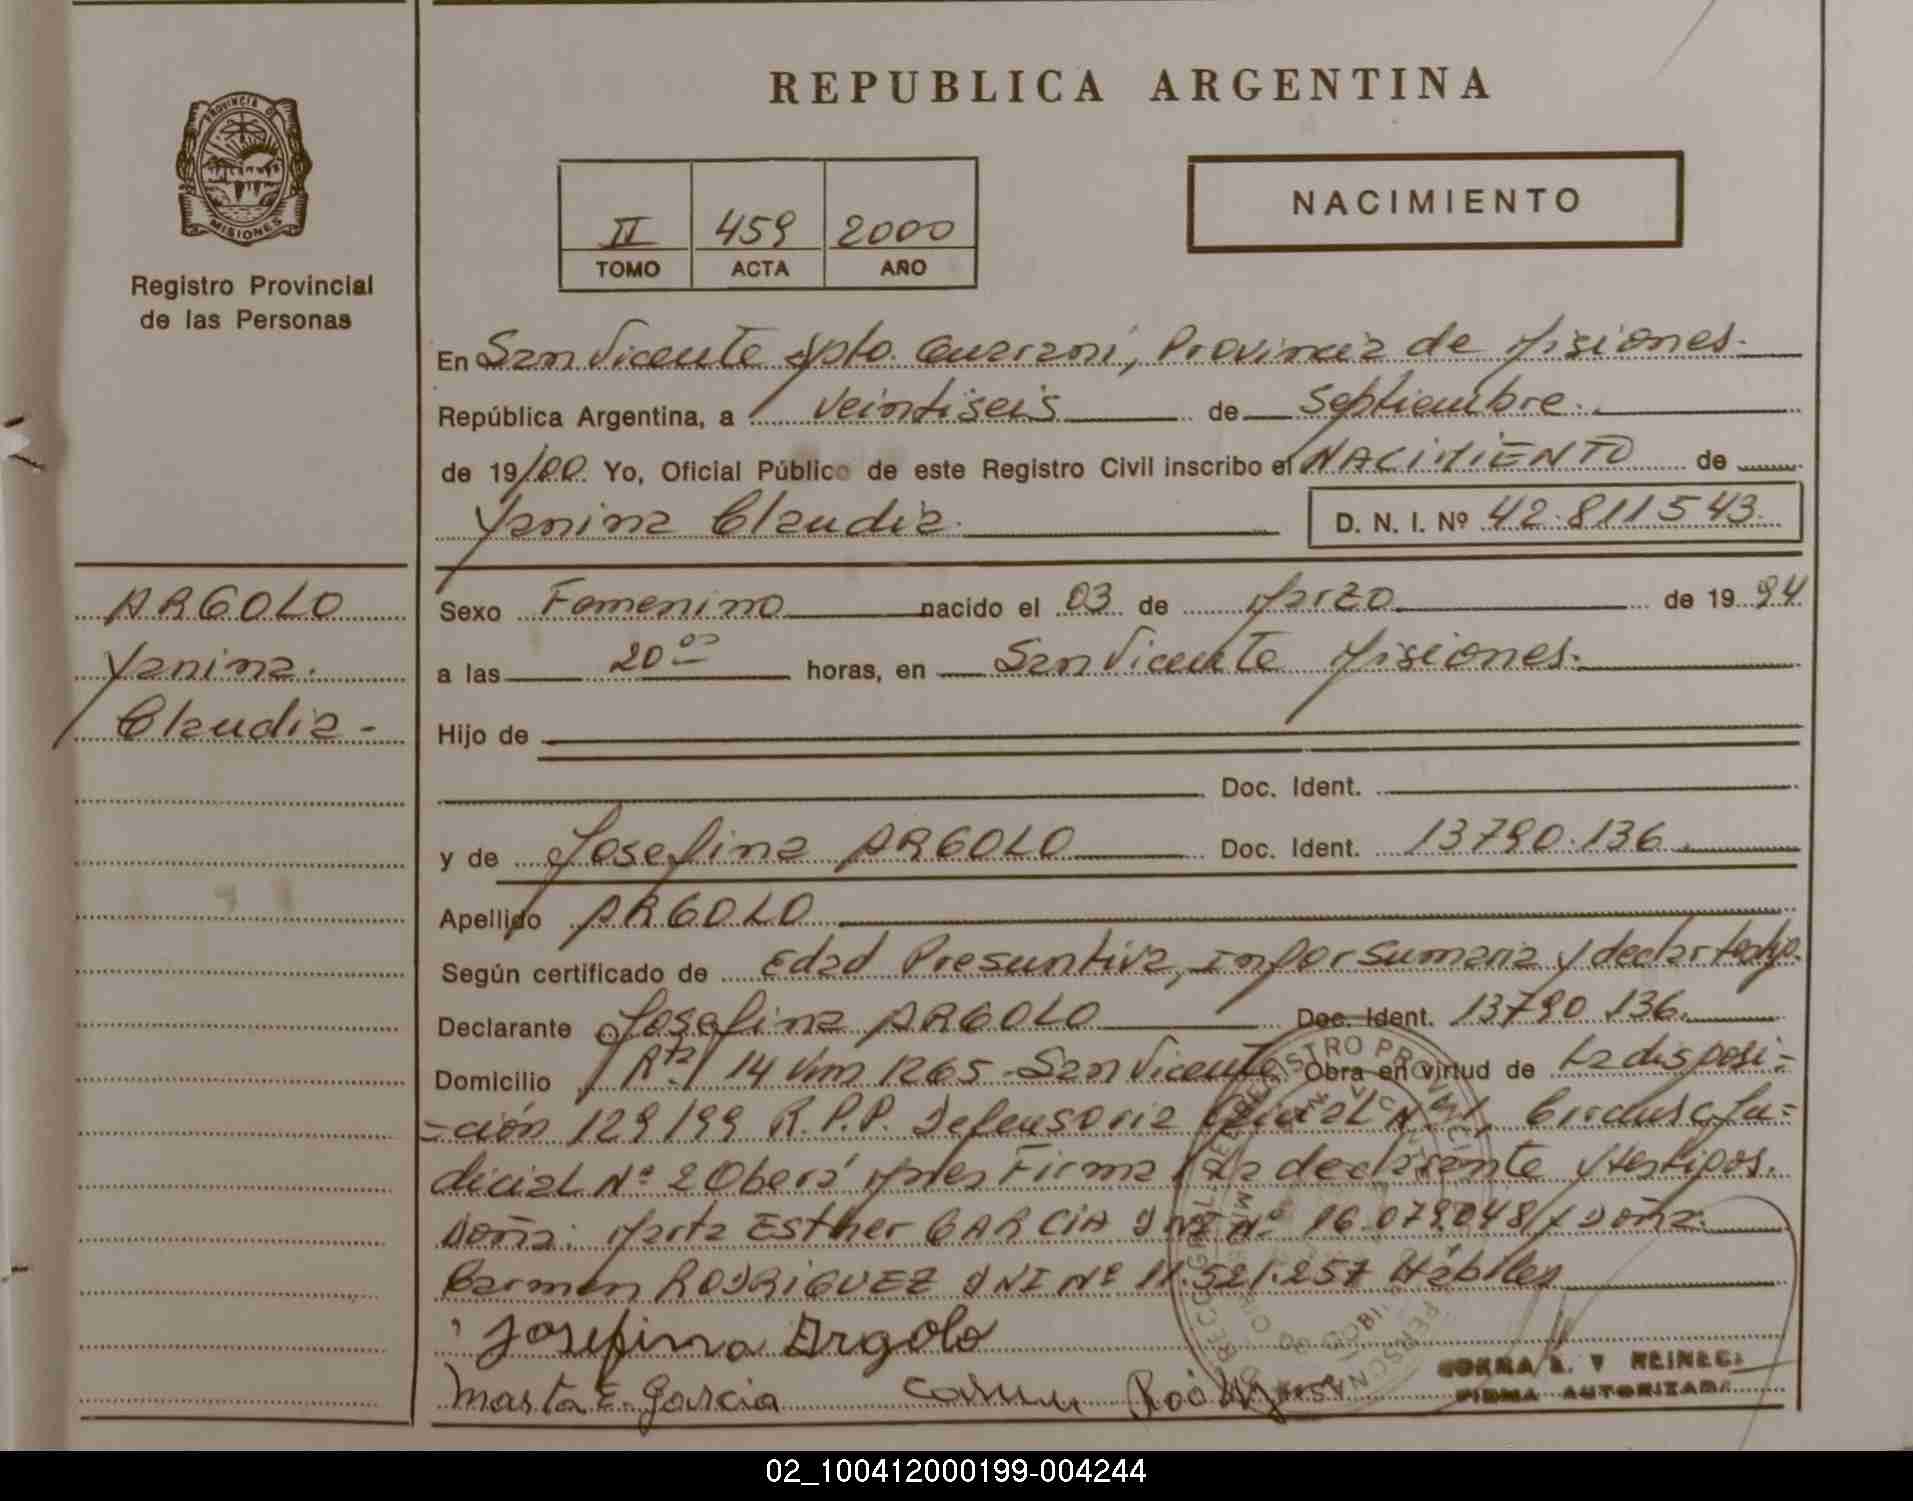 REPUBLICA ARGENTINA
PROVINCIA DE
MISIONES
Registro Provincial
de las Personas
II 459 2000
TOMO ACTA AÑO
NACIMIENTO
En San Vicente Dpto. Guarani, Provincia de Misiones.
República Argentina, a veintiseis de Septiembre.
de 19/00. Yo, Oficial Público de este Registro Civil inscribo el NACIMIENTO de
Yanina Claudia. D. N. I. Nº 42.811543.
ARGOLO
Yanina.
Claudia -
Sexo Femenino nacido el 03 de Marzo de 19 94
a las 20 00 horas, en San Vicente Misiones.
Hijo de
Doc. Ident.
y de Josefina ARGOLO Doc. Ident. 13790.136
Apellido ARGOLO
Según certificado de Edad Presuntiva, Infor Sumaria y declar testgo.
Declarante Josefina ARGOLO Doc. Ident. 13790 136.
Domicilio Rta 14 Km 1265 - San Vicente Obra en virtud de La disposi=
=ción 129/99 R.P.P. Defensoria Oficial Nº 1, Circunsc Ju=
dicial Nº 2 Oberá Mnes Firma la declarante y testigos.
Doña: Marta Esther GARCIA DNI Nº 16.079.048 y Doña:
Carmen RODRIGUEZ DNI Nº 11.521.257 Hábiles
Josefina Argolo
Marta E. Garcia
FIRMA AUTORIZADA
02_100412000199-004244